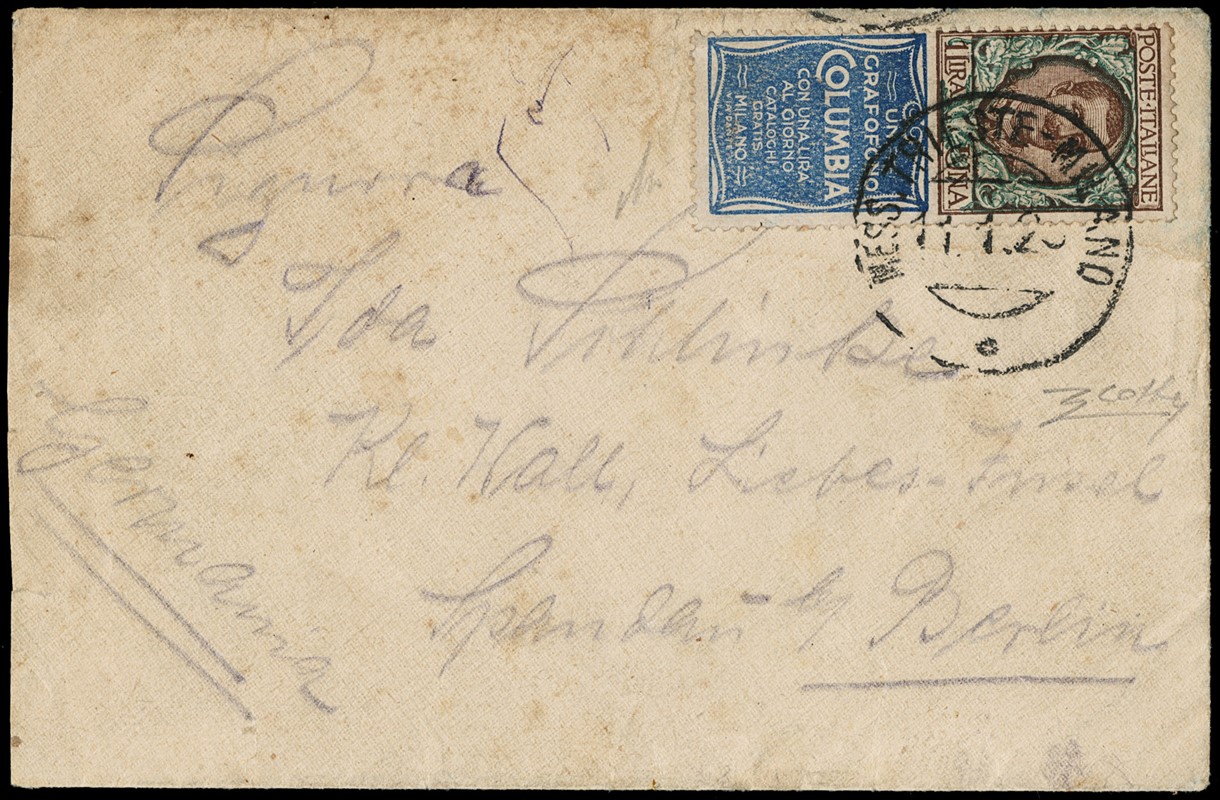 OGGI
UN
GRAFOFONO
COLUMBIA
CON UNA LIRA
AL GIORNO
CATALOGHI
GRATIS.
MILANO
POSTE·ITALIANE
LIRA UNA
MESS. TRIESTE-MILANO
Signora
Ida
Kl. Wall, Liebes-Insel
Spandau b/ Berlin
Germania